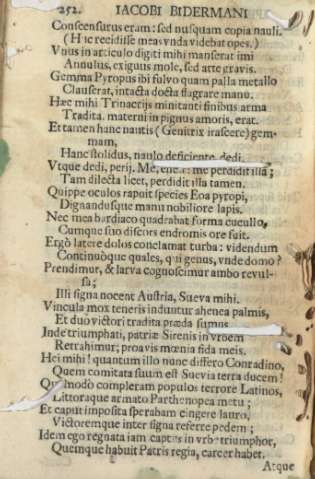 252. IACOBI BIDERMANI
Conscensurus eram: sed nusquam copia nauli.
(Hic recidisse meas unda videbat opes.)
Vnus in articulo digiti mihi manserat imi
Annulus, exiguus mole, sed arte gravis.
Gemma Pyropus ibi fulvo quam palla metallo
Clauserat, intacta docta flagrare manu.
Hæc mihi Trinacrijs minitanti finibus arma
Tradita. materni in pignus amoris, erat.
Et tamen hanc nautis (Genitrix irascere) gem-
mam,
Hanc stolidus, naulo deficiente, dedi.
Vtque dedi, perij. Me, me perdidit illa;
Tam dilecta licet, perdidit illa tamen.
Quippe oculos rapuit species Eoa pyropi,
Dignandusque manu nobiliore lapis.
Nec mea bardiaco quadrabat forma cucullo,
Cumque suo discors endromis ore fuit.
Ergò latere dolos conclamat turba: videndum
Continuòque quales, qui genus, unde domo?
Prendimur, & larva cognoscimur ambo revul-
sa;
Illi signa nocent Austria, Sueva mihi.
Vincula mox teneris induntur ahenea palmis,
Et duo victori tradita præda sumus.
Inde triumphati, patriæ Sirenis in vrbem
Retrahimur; proavis mœnia fida meis.
Hei mihi! quantum illo nunc differo Conradino,
Quem comitata suum est Suevia terra ducem!
Quomodò compleram populos terrore Latinos,
Littoraque armato Parthenopea metu;
Et caput imposita sperabam cingere lauro,
Victoremque inter signa referre pedem;
Idem ego regnata iam captus in vrbe triumphor,
Quemque habuit Patris regia, carcer habet.
Atque